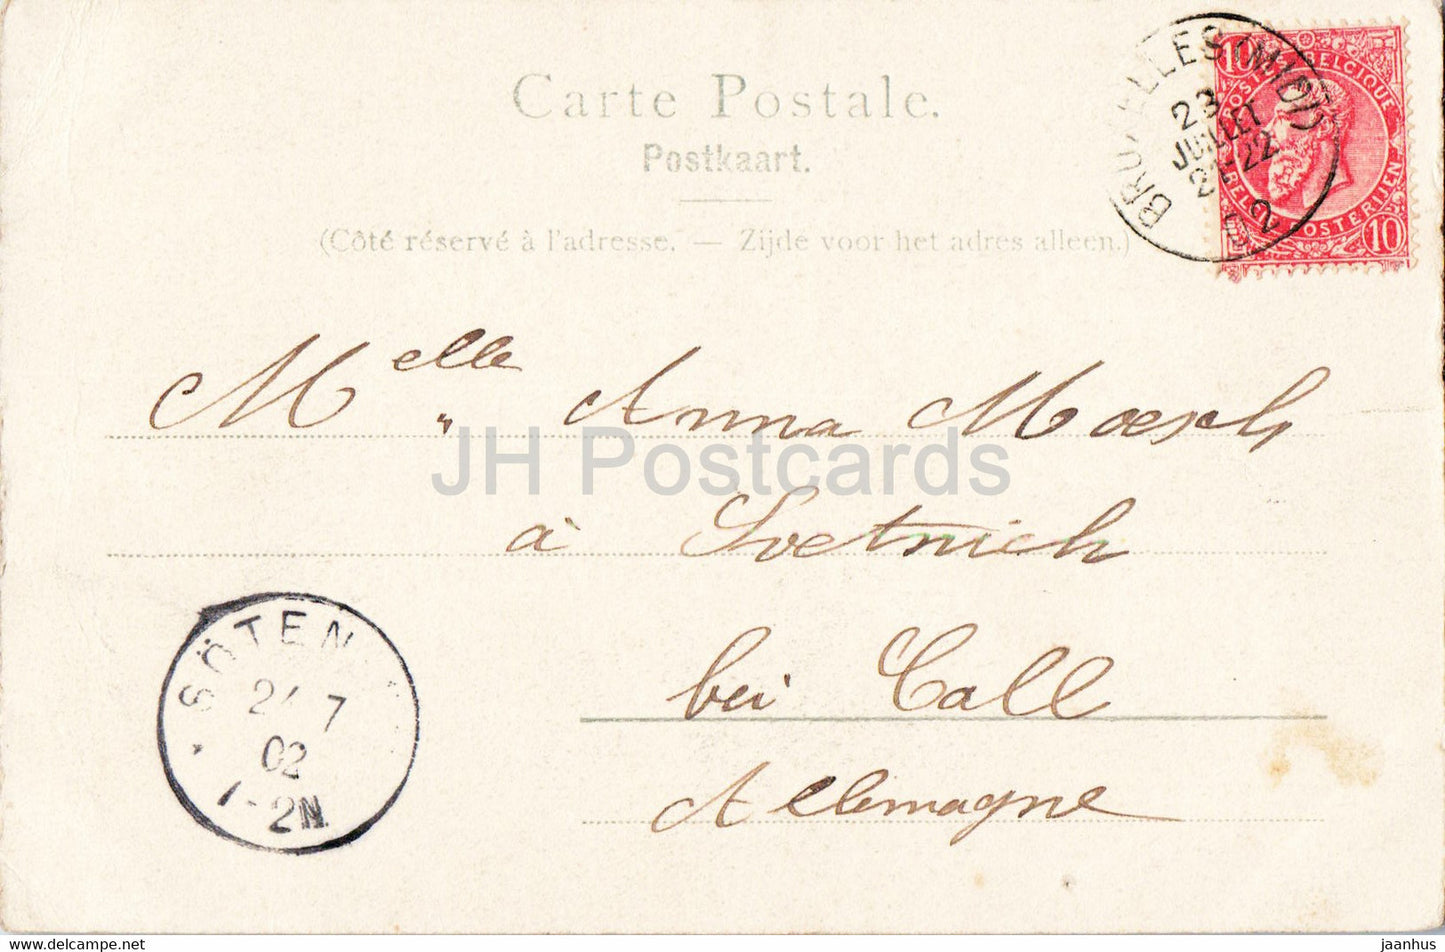 Carte Postale.
Postkaart.
(Côté réservé à l'adresse. — Zijde voor het adres alleen.)
BRUXELLES (MIDI)
23
JUILLET
22
02
10 10
POSTES BELGIQUE
POSTERIJEN
Melle Anna Moesch
à Soetenich
bei Call
Allemagne
SÖTEN
24 7
02
1-2N
JH Postcards
delcampe.net
jaanhus